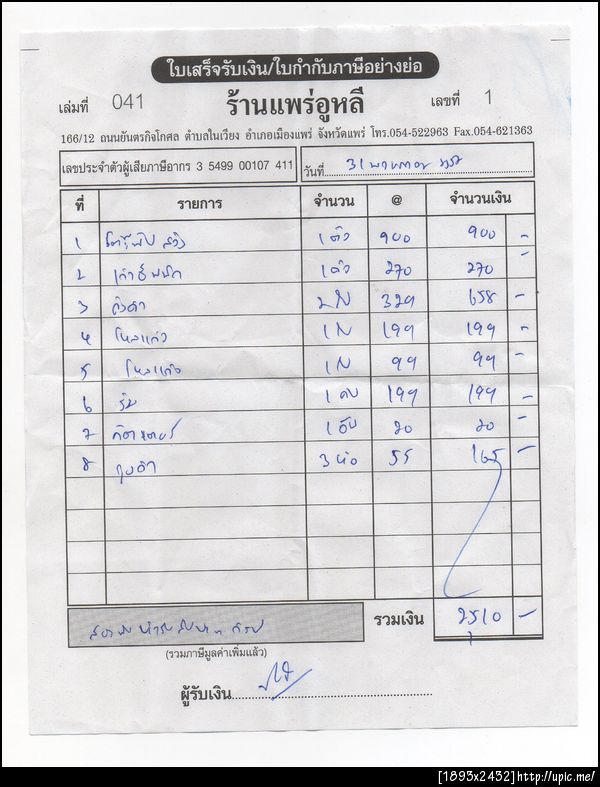 ใบเสร็จรับเงิน/ใบกำกับภาษีอย่างย่อ
เล่มที่ 041 ร้านแพร่อูหลี เลขที่ 1
166/12 ถนนยันตรกิจโกศล ตำบลในเวียง อำเภอเมืองแพร่ จังหวัดแพร่ โทร.054-522963 Fax.054-621363
เลขประจำตัวผู้เสียภาษีอากร 3 5499 00107 411 วันที่ 31
ที่ รายการ จำนวน @ จำนวนเงิน
1 1 ตัว 900 900 -
2 1 ตัว 270 270 -
3 2 ใบ 329 658 -
4 โหลแก้ว 1 ใบ 199 199 -
5 โหลแก้ว 1 ใบ 99 99 -
6 ร่ม 1 คัน 199 199 -
7 1 อัน 20 20 -
8 ถุงดำ 3 ห่อ 55 165 -
รวมเงิน 2510 -
(รวมภาษีมูลค่าเพิ่มแล้ว)
ผู้รับเงิน
[1893x2432]http://upic.me/